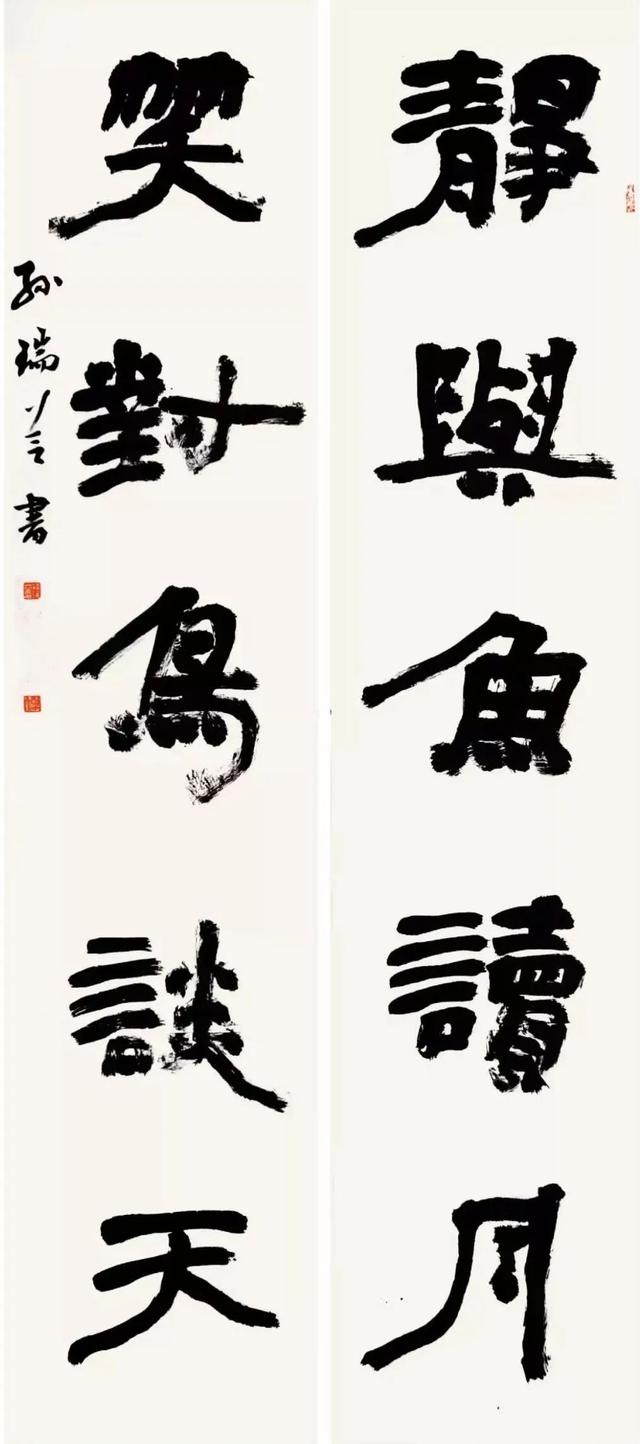 靜與魚讀月
笑對鳥談天
孫瑞
書